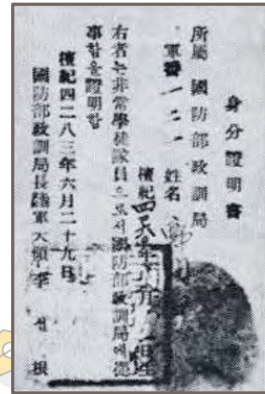 身分證明書
所屬 國防部政訓局
軍番 一二一 姓名
檀紀四
右者는非常學徒隊員으로서國防部政訓局에從
事함을證明함
檀紀四二八三年六月二十九日
國防部政訓局長陸軍大領 李 瑄 根